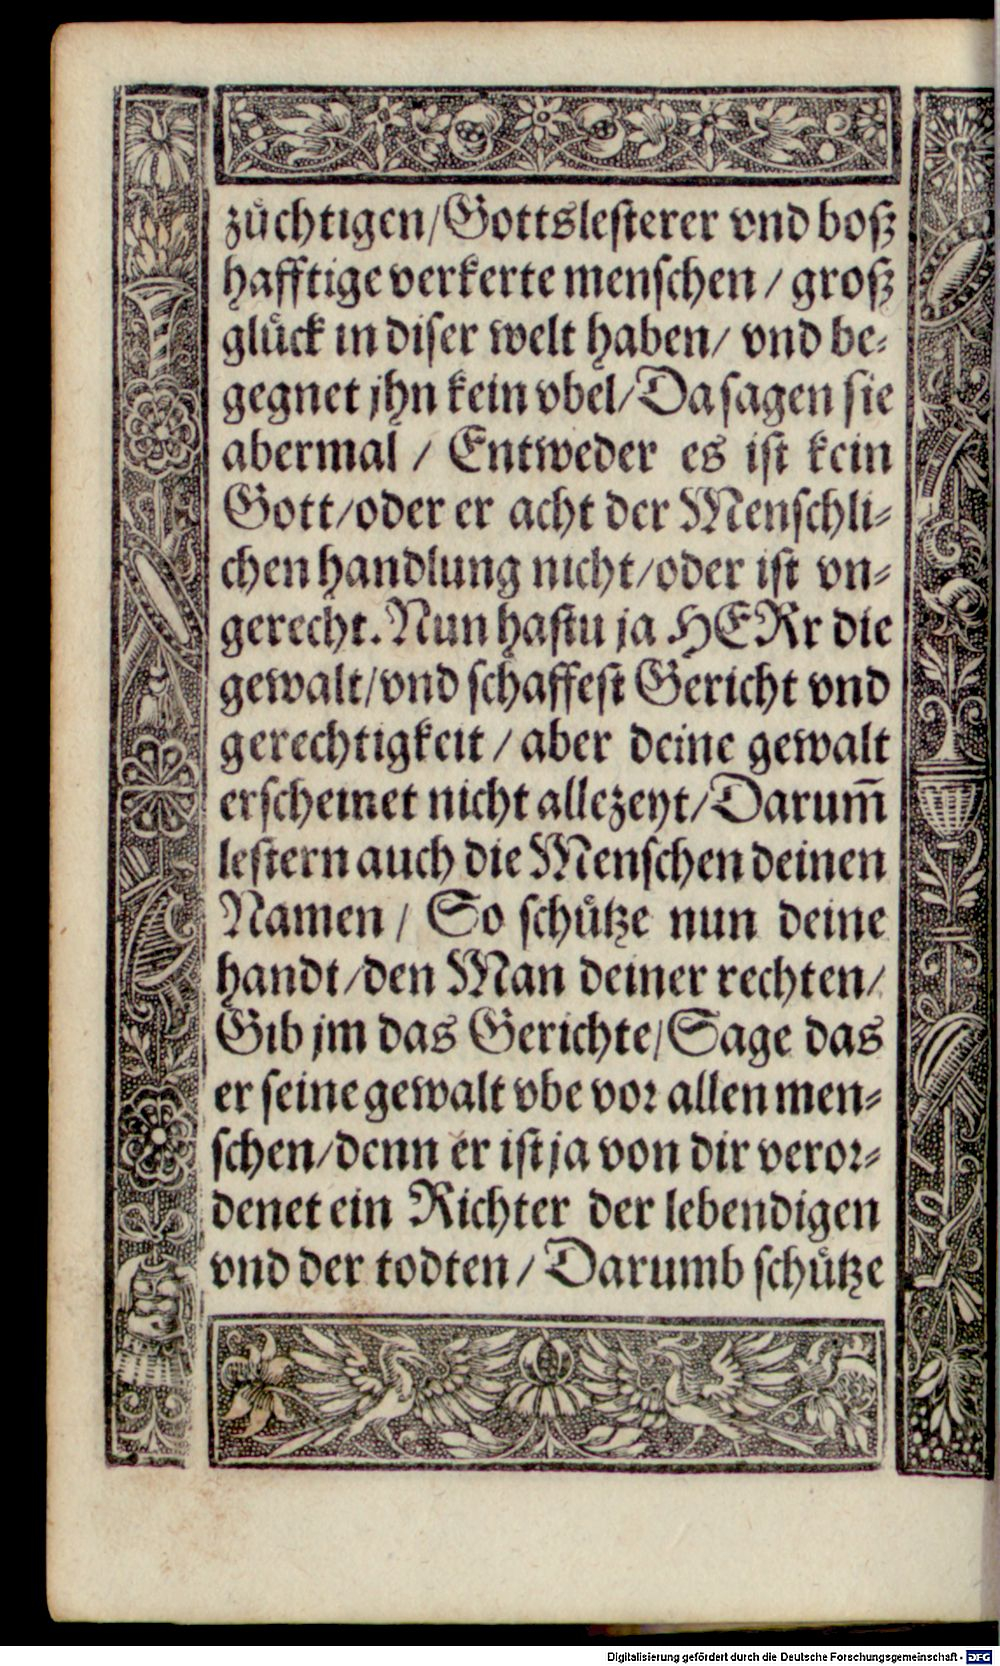 zuͤchtigen/Gottslesterer vnd boſz
hafftige verkerte menſchen / groſz
gluͤck in diſer welt haben/ vnd be⸗
gegnet jhn kein vbel/Da ſagen ſie
abermal / Entweder es iſt kein
Gott/oder er acht der Menſchli⸗
chen handlung nicht/oder iſt vn⸗
gerecht. Nun haſtu ja HERr die
gewalt/vnd ſchaffeſt Gericht vnd
gerechtigkeit / aber deine gewalt
erſcheinet nicht allezeyt/Darum̄
leſtern auch die Menſchen deinen
Namen / So ſchuͤtze nun deine
handt/den Man deiner rechten/
Gib jm das Gerichte/Sage das
er ſeine gewalt vbe voꝛ allen men⸗
ſchen/denn er iſt ja von dir veroꝛ⸗
denet ein Richter der lebendigen
vnd der todten / Darumb ſchuͤtze
Digitalisierung gefördert durch die Deutsche Forschungsgemeinschaft - DFG